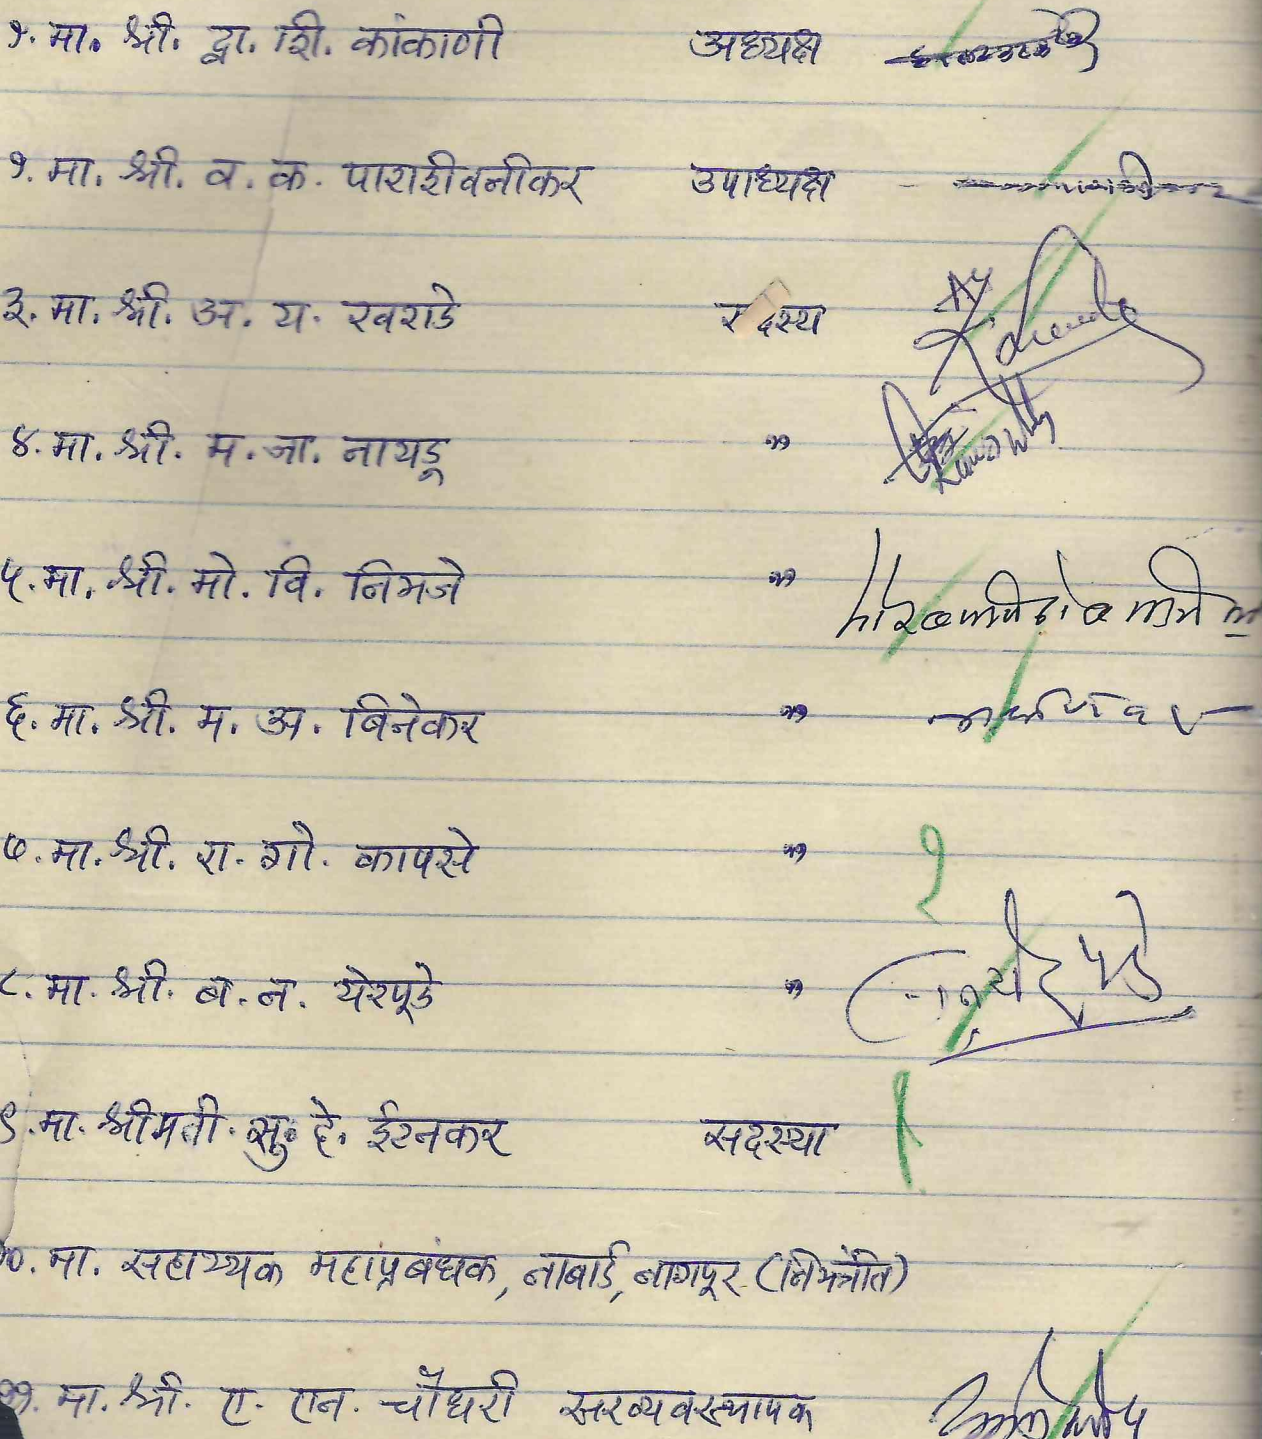 १. मा. श्री. द्वा. शि. कांकाणी अध्यक्ष
२. मा. श्री. व. क. पाराशीवनीकर उपाध्यक्ष
३. मा. श्री. अ. य. खराडे सदस्य
४. मा. श्री. म. जा. नायडू "
५. मा. श्री. मो. वि. निमजे "
६. मा. श्री. म. अ. बिनेकर "
७. मा. श्री. रा. गो. कापसे "
८. मा. श्री. ब. न. येरपूडे "
९. मा. श्रीमती. सु. दे. ईटनकर सदस्या
१०. मा. सहाय्यक महाप्रबंधक, नाबार्ड, नागपूर (निमंत्रीत)
११. मा. श्री. ए. एन. चौधरी सरव्यवस्थापक